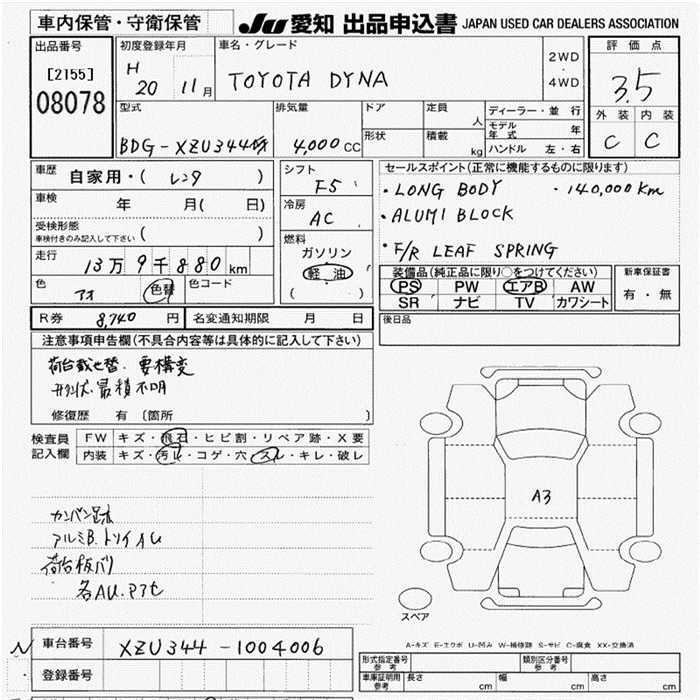 車内保管・守衛保管 JU 愛知 出品申込書 JAPAN USED CAR DEALERS ASSOCIATION
出品番号
[2155]
08078
初度登録年月
H 20 11月
車名・グレード
TOYOTA DYNA
2WD
・
4WD
評価点
3.5
外装 内装
C C
型式
BDG-XZU344
排気量
4,000 CC
ドア
形状
定員 人
積載 kg
ディーラー・並行
モデル年式 年
ハンドル 左・右
車歴 自家用・( レンタ )
車検 年 月( 日)
受検形態
車検付きのみ記入して下さい ( )
走行 13万9千880km
色 アオ 色替 色コード
シフト
F5
冷房
AC
燃料
ガソリン
軽油
( )
セールスポイント(正常に機能するものに限ります)
・LONG BODY ・140,000km
・ALUMI BLOCK
・F/R LEAF SPRING
装備品(純正品に限り○をつけてください)
PS PW エアB AW
SR ナビ TV カワシート
新車保証書
有・無
R券 8,740円 名変通知期限 月 日
後日品
注意事項申告欄(不具合内容等は具体的に記入して下さい)
荷台載せ替、要構変
形状、最積不明
修復歴 有 〔箇所 〕
検査員記入欄
FW キズ・飛石・ヒビ割・リペア跡・X要
内装 キズ・汚レ・コゲ・穴・スレ・キレ・破レ
カンバン跡
アルミB、トリイAU
荷台板バリ
各AU、アオセ
A3
スペア
A-キズ E-エクボ U-凹み W-補修跡 S-サビ C-腐食 XX-交換済
N 車台番号 XZU344-1004006
登録番号
形式指定番号
参考
類別区分番号
参考
車庫証明用
参考
長さ cm 幅 cm 高さ cm